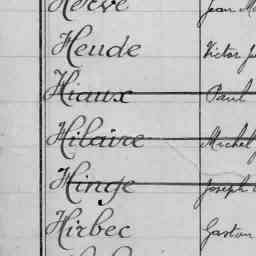 Hervé Jean
Heude Victor
Hiaux Paul
Hilaire Michel
Hinge Joseph
Hirbec Gaston